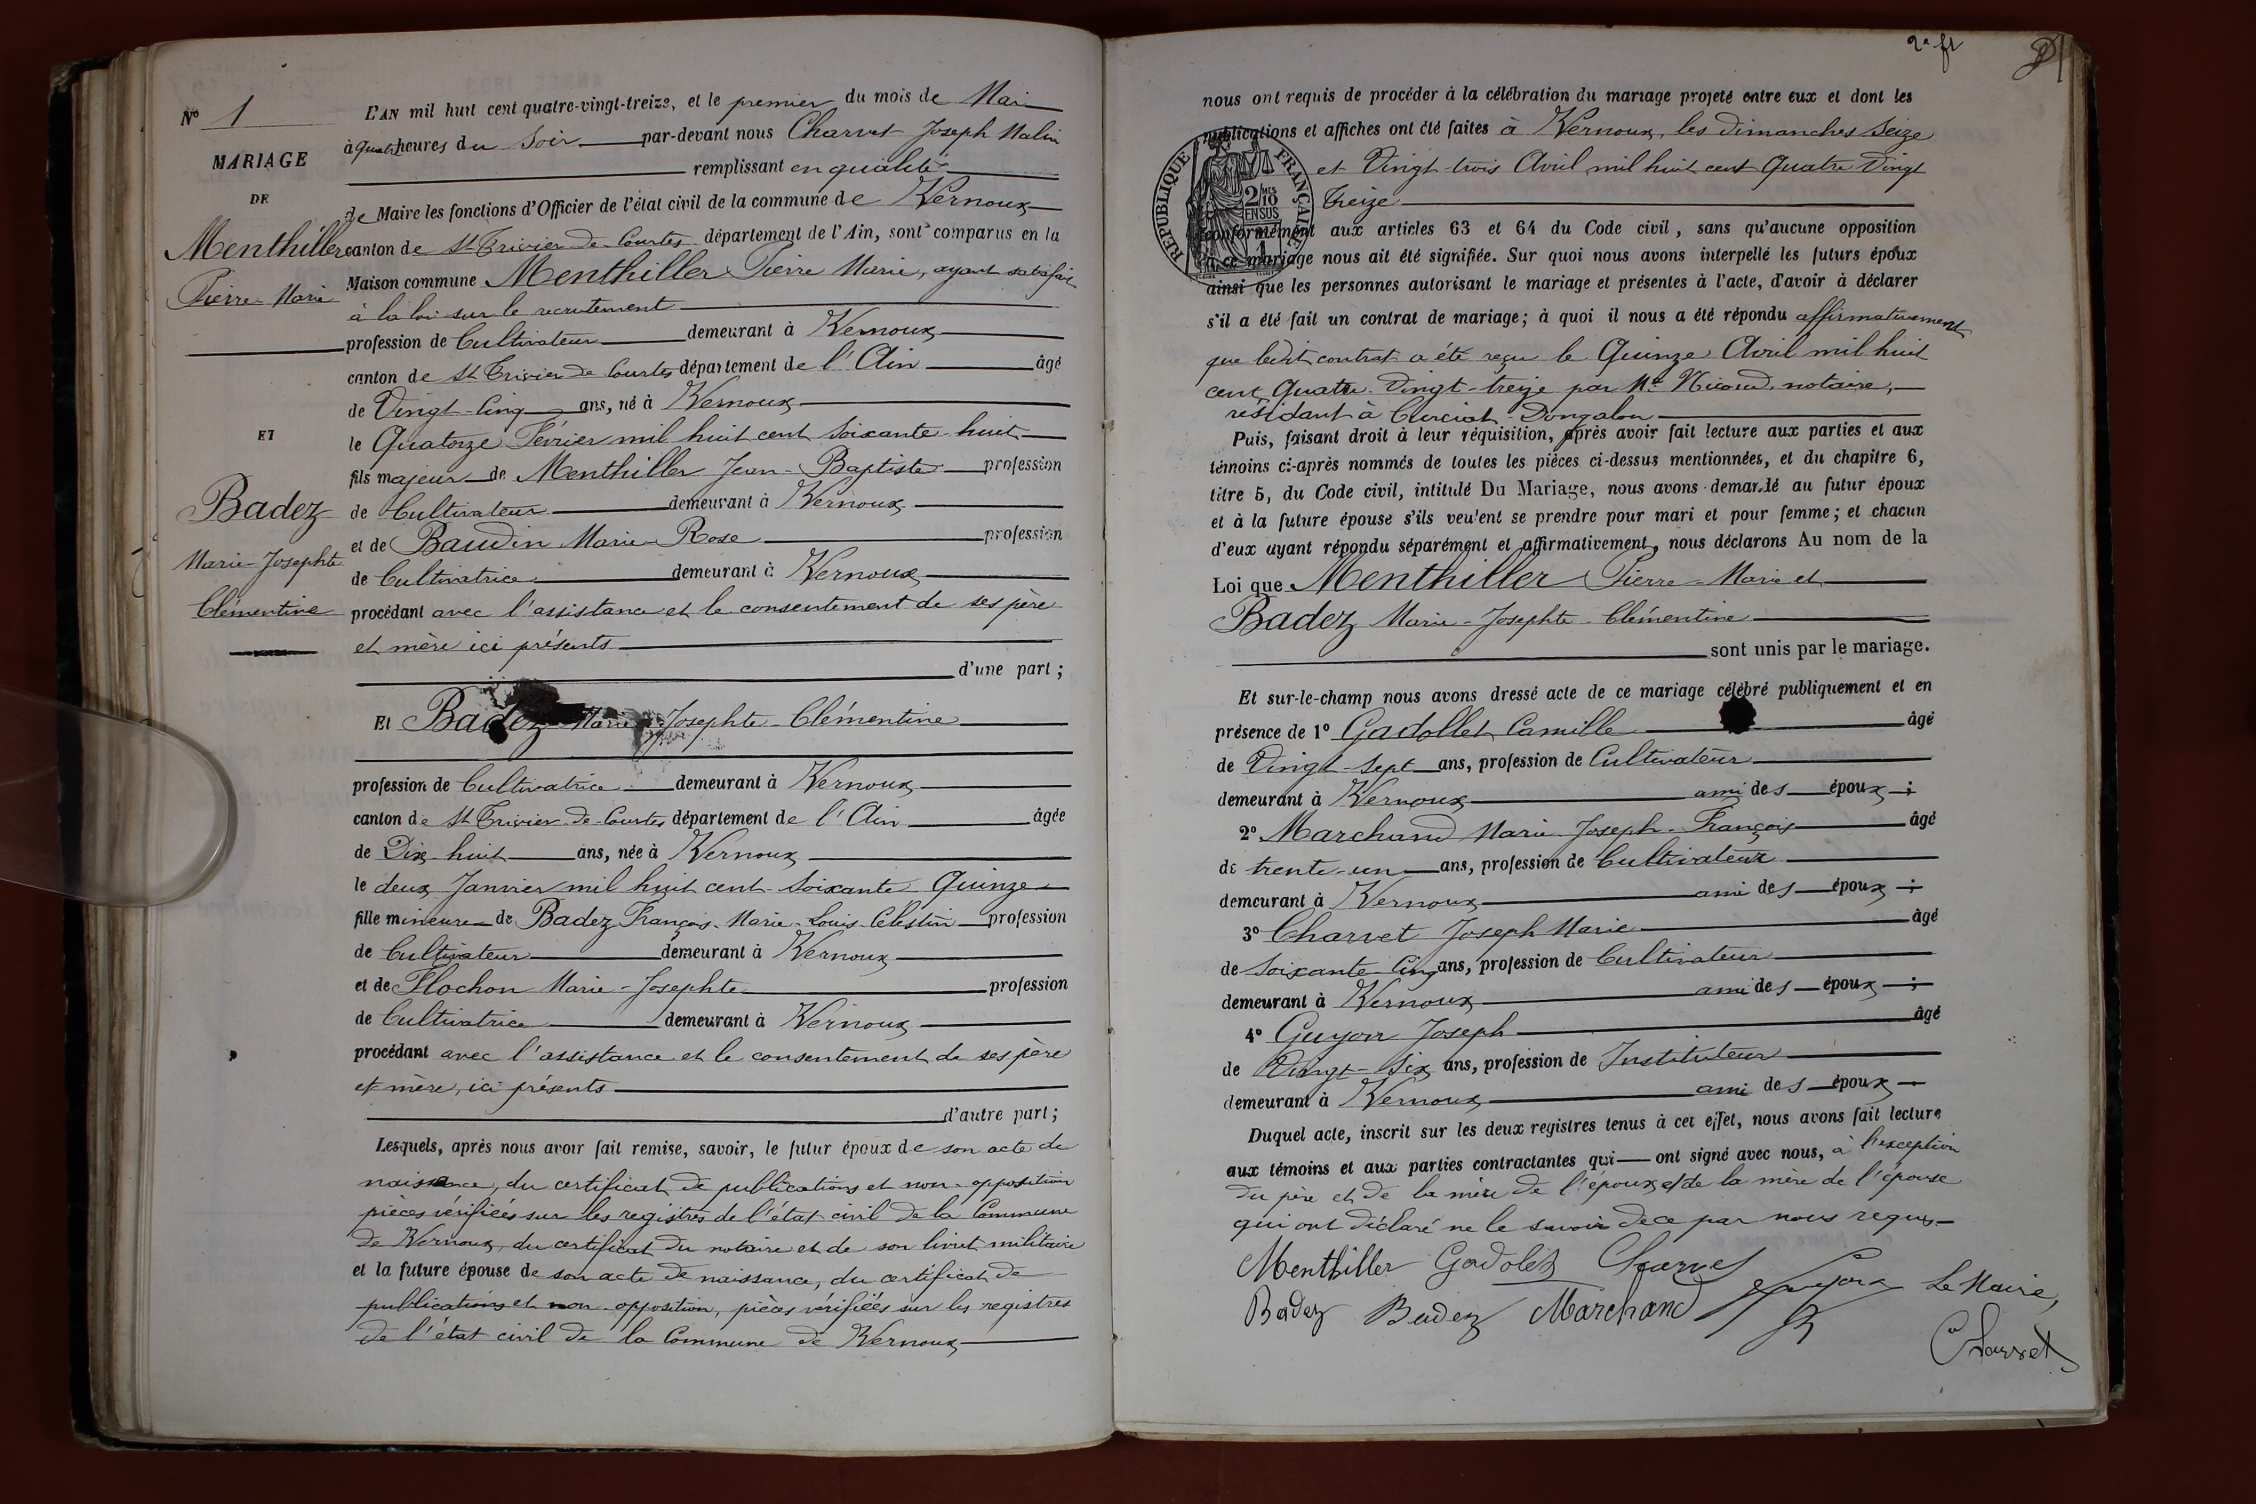 N° 1
MARIAGE
DE
Menthiller
Pierre-Marie
ET
Badez
Marie-Josephte
Clémentine
L'AN mil huit cent quatre-vingt-treize, et le premier du mois de Mai
à quatre heures du Soir par-devant nous Charvet Joseph Malin
remplissant en qualité
de Maire les fonctions d'Officier de l'état civil de la commune de Vernoux
canton de St Trivier-de-Courtes département de l'Ain, sont comparus en la
Maison commune Menthiller Pierre Marie, ayant satisfait
à la loi sur le recrutement
profession de Cultivateur demeurant à Vernoux
canton de St Trivier de Courtes département de l'Ain âgé
de Vingt-Cinq ans, né à Vernoux
le Quatorze Février mil huit cent soixante-huit
fils majeur de Menthiller Jean-Baptiste profession
de Cultivateur demeurant à Vernoux
et de Baudin Marie-Rose profession
de Cultivatrice demeurant à Vernoux
procédant avec l'assistance et le consentement de ses père
et mère ici présents
d'une part ;
Et Badez Marie-Josephte-Clémentine
profession de Cultivatrice demeurant à Vernoux
canton de St Trivier-de-Courtes département de l'Ain âgée
de Dix-huit ans, née à Vernoux
le deux Janvier mil huit cent soixante Quinze
fille mineure de Badez François-Marie-Louis-Célestin profession
de Cultivateur demeurant à Vernoux
et de Flochon Marie-Josephte profession
de Cultivatrice demeurant à Vernoux
procédant avec l'assistance et le consentement de ses père
et mère, ici présents
d'autre part ;
Lesquels, après nous avoir fait remise, savoir, le futur époux de son acte de
naissance, du certificat de publications et non-opposition
pièces vérifiées sur les registres de l'état civil de la Commune
de Vernoux, du certificat du notaire et de son livret militaire
et la future épouse de son acte de naissance, du certificat de
publications et non-opposition, pièces vérifiées sur les registres
de l'état civil de la Commune de Vernoux
2e ft
nous ont requis de procéder à la célébration du mariage projeté entre eux et dont les
publications et affiches ont été faites à Vernoux, les dimanches Seize
et Vingt-trois Avril mil huit cent Quatre Vingt
Treize
RÉPUBLIQUE FRANÇAISE
2/10 EN SUS
conformément aux articles 63 et 64 du Code civil, sans qu'aucune opposition
à ce mariage nous ait été signifiée. Sur quoi nous avons interpellé les futurs époux
ainsi que les personnes autorisant le mariage et présentes à l'acte, d'avoir à déclarer
s'il a été fait un contrat de mariage ; à quoi il nous a été répondu affirmativement
que ledit contrat a été reçu le Quinze Avril mil huit
cent Quatre-Vingt-treize par Me Nicoud, notaire,
résidant à Curciat-Dongalon
Puis, faisant droit à leur réquisition, après avoir fait lecture aux parties et aux
témoins ci-après nommés de toutes les pièces ci-dessus mentionnées, et du chapitre 6,
titre 5, du Code civil, intitulé Du Mariage, nous avons demandé au futur époux
et à la future épouse s'ils veulent se prendre pour mari et pour femme ; et chacun
d'eux ayant répondu séparément et affirmativement, nous déclarons Au nom de la
Loi que Menthiller Pierre-Marie et
Badez Marie-Josephte-Clémentine
sont unis par le mariage.
Et sur-le-champ nous avons dressé acte de ce mariage célébré publiquement et en
présence de 1° Gadollet Camille âgé
de Vingt-Sept ans, profession de Cultivateur
demeurant à Vernoux ami des époux ;
2° Marchand Marie-Joseph-François âgé
de trente-un ans, profession de Cultivateur
demeurant à Vernoux ami des époux ;
3° Charvet Joseph Marie âgé
de soixante Cinq ans, profession de Cultivateur
demeurant à Vernoux ami des époux ;
4° Guyon Joseph âgé
de Vingt-Six ans, profession de Instituteur
demeurant à Vernoux ami des époux
Duquel acte, inscrit sur les deux registres tenus à cet effet, nous avons fait lecture
aux témoins et aux parties contractantes qui ont signé avec nous, à l'exception
du père et de la mère de l'époux et de la mère de l'épouse
qui ont déclaré ne le savoir de ce par nous requis
Menthiller Gadolet Charvet Guyon Le Maire,
Badez Badez Marchand
Charvet